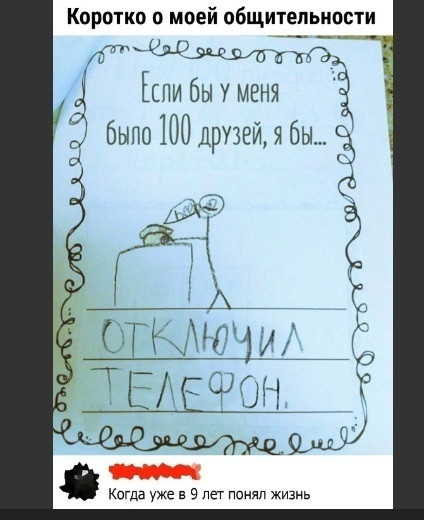 Коротко о моей общительности
Если бы у меня
было 100 друзей, я бы...
ОТКЛЮЧИЛ
ТЕЛЕФОН.
Когда уже в 9 лет понял жизнь